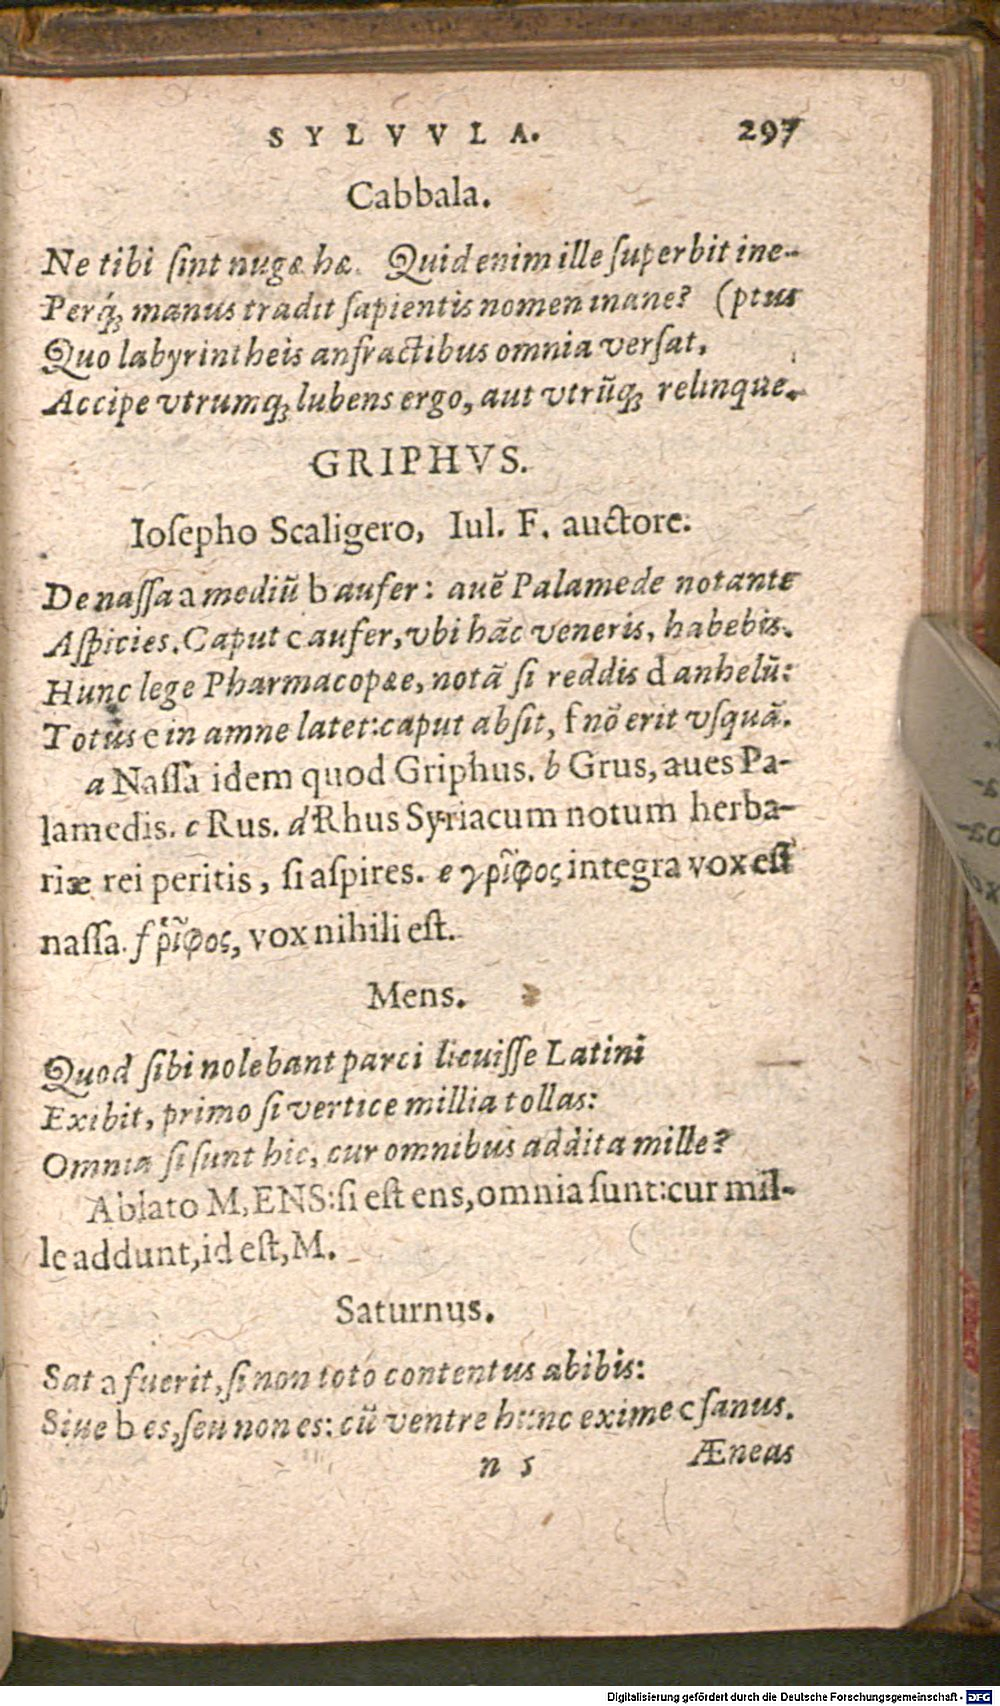 SYLVVLA. 297
Cabbala.
Ne tibi ſint nugæ hæ. Quid enim ille ſuperbit ine-
Perq́; manus tradit ſapientis nomen inane? (ptus
Quo labyrintheis anfractibus omnia verſat,
Accipe vtrumq; lubens ergo, aut vtrũq; relinque.
GRIPHVS.
Ioſepho Scaligero, Iul. F. auctore.
De naſſa a mediũ b aufer: auẽ Palamede notante
Aſpicies. Caput c aufer, vbi hãc veneris, habebis.
Hunc lege Pharmacopæe, notã ſi reddis d anhelũ:
Totus e in amne latet: caput abſit, f nõ erit vſquã.
a Naſſa idem quod Griphus. b Grus, aues Pa-
lamedis. c Rus. d Rhus Syriacum notum herba-
riæ rei peritis, ſi aſpires. e γρῖφος integra vox eſt
naſſa. f ῥῖφος, vox nihili eſt.
Mens.
Quod ſibi nolebant parci licuiſſe Latini
Exibit, primo ſi vertice millia tollas:
Omnia ſi ſunt hic, cur omnibus addita mille?
Ablato M, ENS: ſi eſt ens, omnia ſunt: cur mil-
le addunt, id eſt, M.
Saturnus.
Sat a fuerit, ſi non toto contentus abibis:
Siue b es, ſeu non es: cũ ventre hunc exime c ſanus.
n 5 Æneas
Digitalisierung gefördert durch die Deutsche Forschungsgemeinschaft - DFG